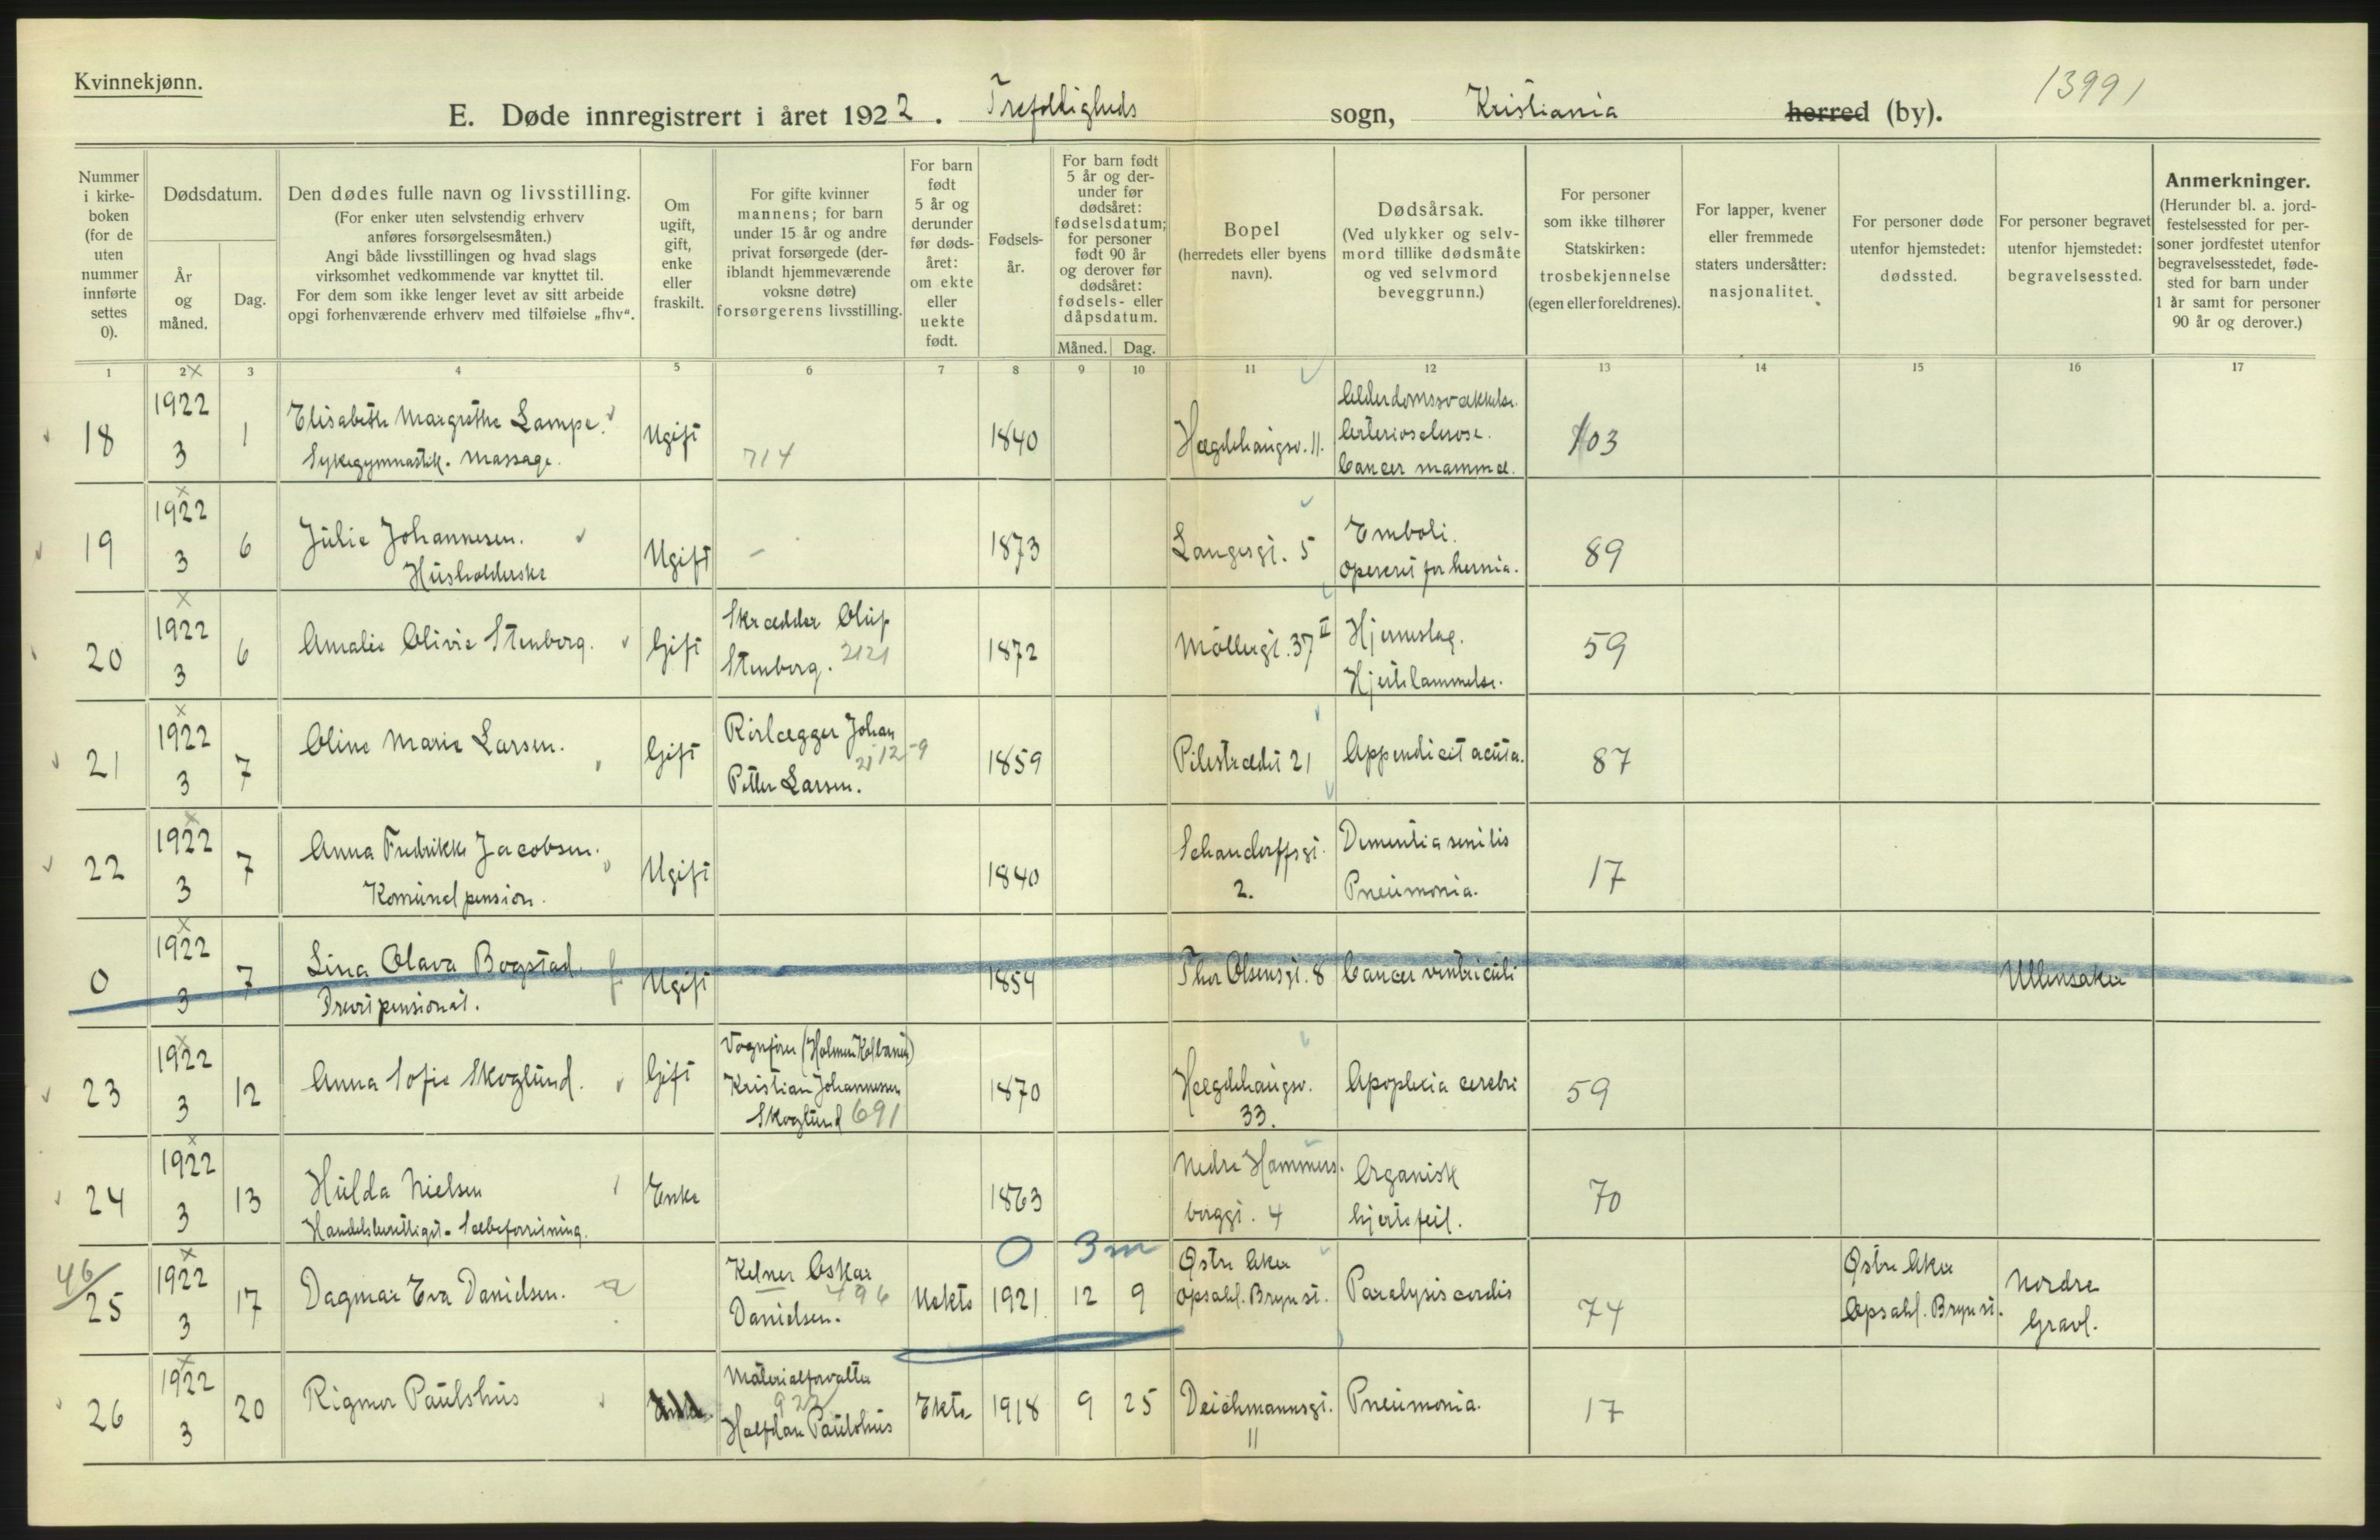 Kvinnekjønn.
13991
E. Døde innregistrert i året 1922. Trefoldigheds sogn, Kristiania herred (by).
Nummer i kirke-boken (for de uten nummer innførte settes 0).
Dødsdatum.
År og måned.
Dag.
Den dødes fulle navn og livsstilling.
(For enker uten selvstendig erhverv
anføres forsørgelsesmåten.)
Angi både livsstillingen og hvad slags
virksomhet vedkommende var knyttet til.
For dem som ikke lenger levet av sitt arbeide
opgi forhenværende erhverv med tilføielse „fhv“.
Om ugift, gift, enke eller fraskilt.
For gifte kvinner
mannens; for barn
under 15 år og andre
privat forsørgede (der-
iblandt hjemmeværende
voksne døtre)
forsørgerens livsstilling.
For barn født 5 år og derunder før døds-året: om ekte eller uekte født.
Fødsels-år.
For barn født
5 år og der-
under før
dødsåret:
fødselsdatum;
for personer
født 90 år
og derover før
dødsåret:
fødsels- eller
dåpsdatum.
Måned. Dag.
Bopel
(herredets eller byens
navn).
Dødsårsak.
(Ved ulykker og selv-
mord tillike dødsmåte
og ved selvmord
beveggrunn.)
For personer
som ikke tilhører
Statskirken:
trosbekjennelse
(egen eller foreldrenes).
For lapper, kvener
eller fremmede
staters undersåtter:
nasjonalitet.
For personer døde
utenfor hjemstedet:
dødssted.
For personer begravet
utenfor hjemstedet:
begravelsessted.
Anmerkninger.
(Herunder bl. a. jord-
festelsessted for per-
soner jordfestet utenfor
begravelsesstedet, føde-
sted for barn under
1 år samt for personer
90 år og derover.)
1 2 3 4 5 6 7 8 9 10 11 12 13 14 15 16 17
18 1922 3 1 Elisabeth Margrethe Lampe. Sykegymnastik. Massage. Ugift 714 1840 Hægdehaugsv. 11. Alderdomssvækkelse. Arteriosclerose. Cancer mammæ. 103
19 1922 3 6 Julie Johannesen. Husholderske Ugift – 1873 Langesgt. 5 Emboli. Operert for hernia. 89
20 1922 3 6 Amalie Olivie Stenberg. Gift Skrædder Oluf Stenberg. 2121 1872 Møllergt. 37 II Hjerneslag. Hjertelammelse. 59
21 1922 3 7 Oline Marie Larsen. Gift Rørlægger Johan Petter Larsen. 1859 Pilestrædet 21 Appendicit acuta. 87
22 1922 3 7 Anna Fredrikke Jacobsen. Komunal pension. Ugift 1840 Schandorffsgt. 2. Dementia senilis Pneumonia. 17
0 1922 3 7 Lina Olava Bogstad. Ugift 1854 Thor Olsensgt. 8 Cancer ventriculi Ullensaker
23 1922 3 12 Anna Sofie Skoglund. Gift Vognfører (Holmenkolbanen) Kristian Johannessen Skoglund 691 1870 Hægdehaugsv. 33. Apoplexia cerebri 59
24 1922 3 13 Hulda Nielsen Handelsberettiget - Sæbeforretning. Enke 1863 Nedre Hammers- borggt. 4 Organisk hjertefeil. 70
46 25 1922 3 17 Dagmar Eva Danielsen. Kelner Oskar Danielsen. 496 Uekte 0 3 m 1921 12 9 Østre Aker Opsahl. Bryn st. Paralysis cordis 74 Østre Aker Opsahl. Bryn st. Nordre Gravl.
26 1922 3 20 Rigmor Paulshus Materialforvalter 922 Halfdan Paulshus Ekte 1918 9 25 Deichmannsgt. 11 Pneumonia. 17